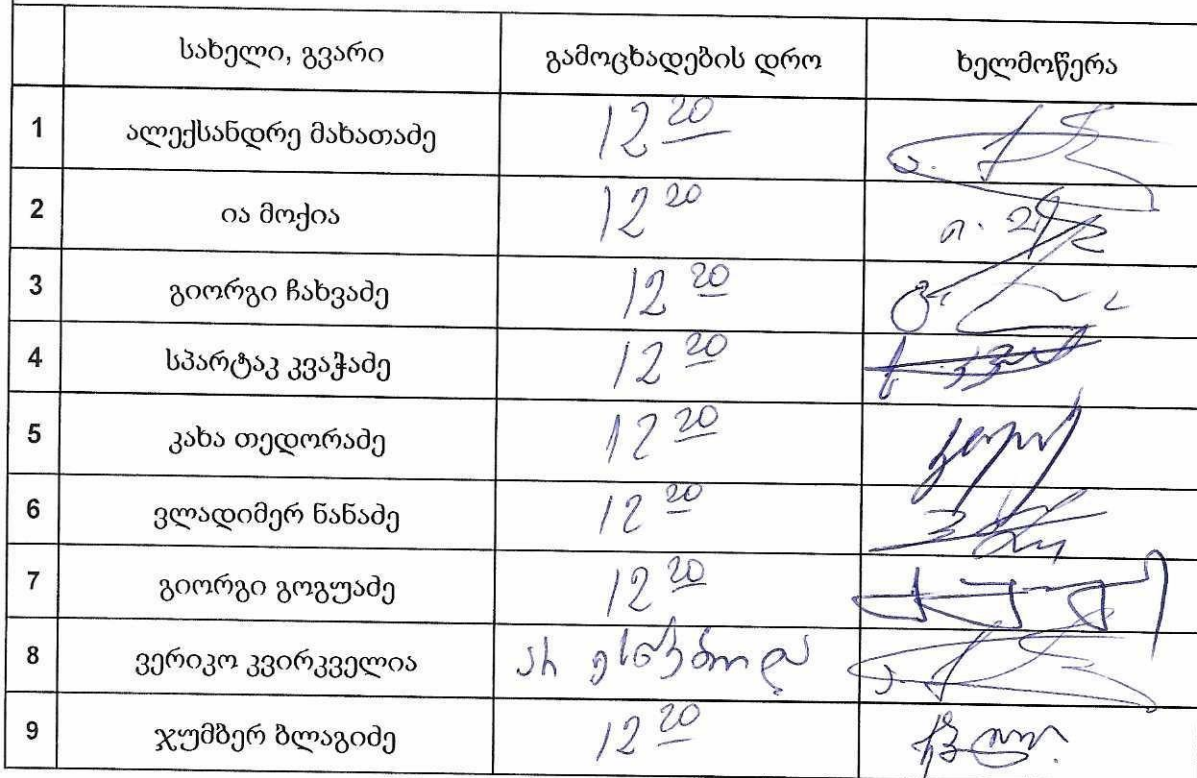 სახელი, გვარი გამოცხადების დრო ხელმოწერა
1 ალექსანდრე მახათაძე 12 20
2 ია მოქია 12 20
3 გიორგი ჩახვაძე 12 20
4 სპარტაკ კვაჭაძე 12 20
5 კახა თედორაძე 12 20
6 ვლადიმერ ნანაძე 12 20
7 გიორგი გოგუაძე 12 20
8 ვერიკო კვირკველია არ ესწრებოდა
9 ჯუმბერ ბლაგიძე 12 20